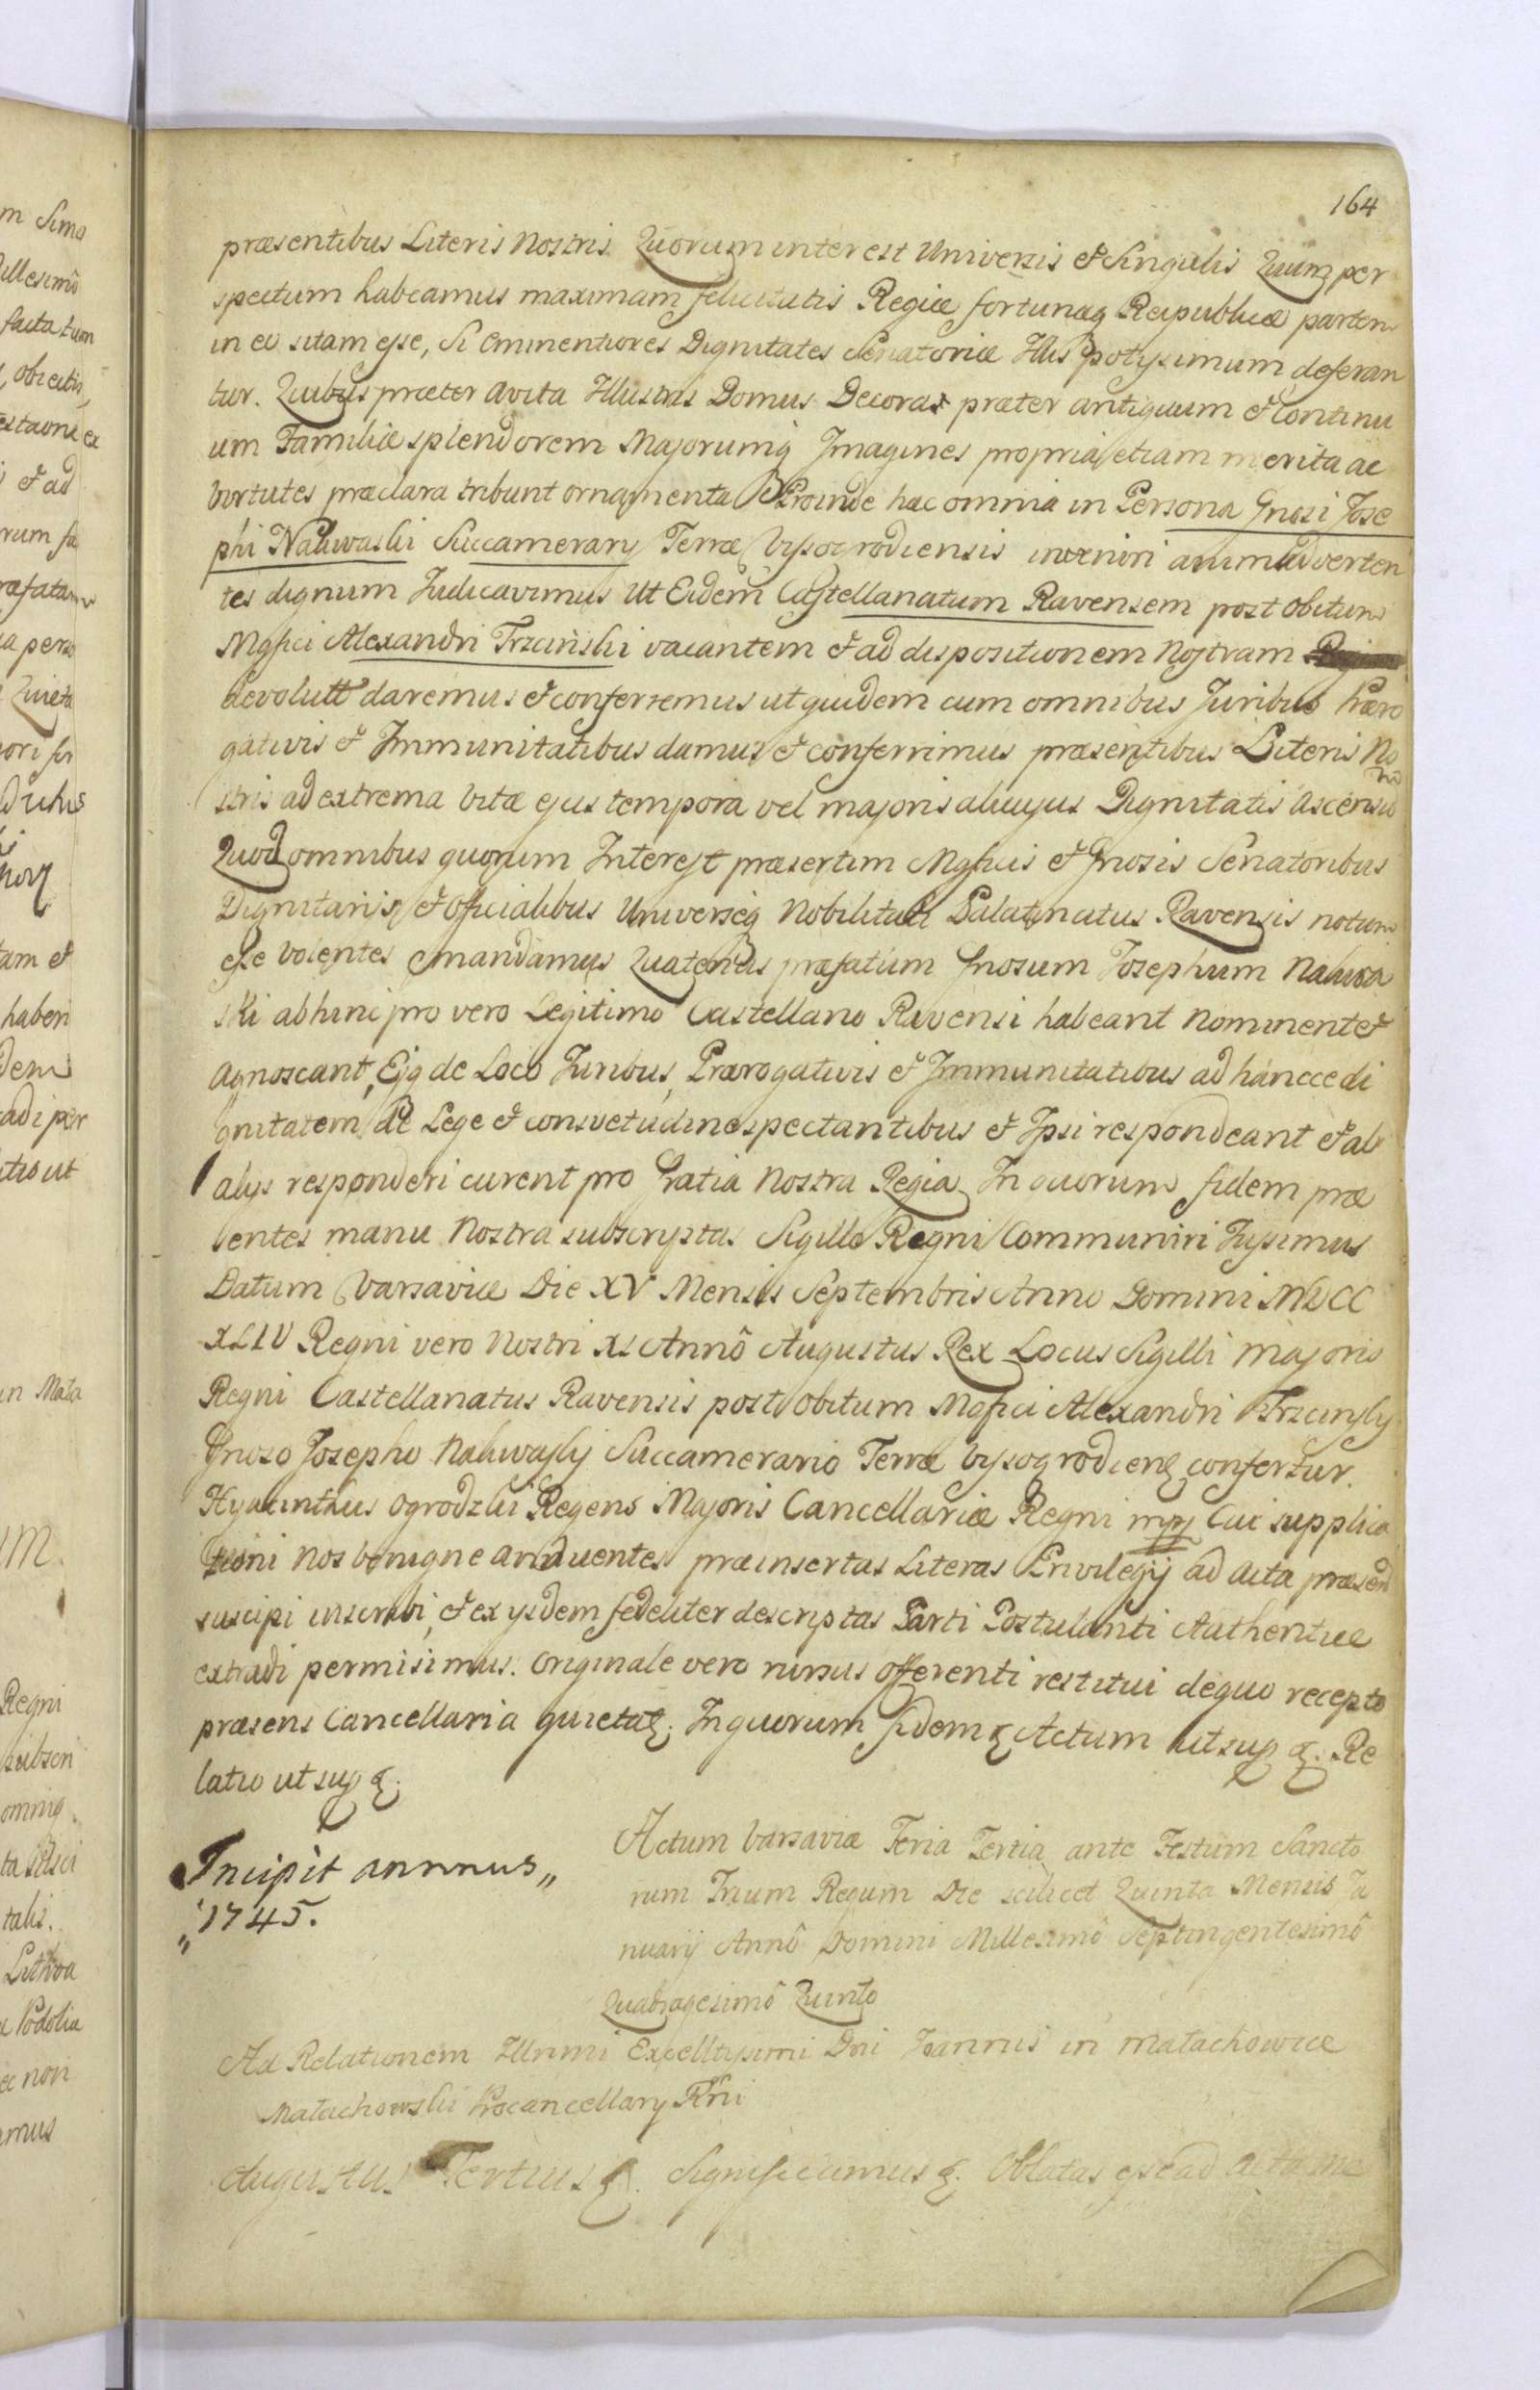 164
præsentibus Literis Nostris Quorum interest Universis et Singulis Quum per
spectum habeamus maximam felicitatis Regiæ fortunæq Reipublicæ partem
in eo sitam esse, Si Eminentiores Dignitates Senatoriæ Illis potyssimum deferan
tur. Quibus præter avita Illustris Domus Decora præter antiquum et Continu
um Familiæ splendorem Majorumq Imagines propria etiam merita ac
Virtutes præclara tribunt ornamenta Proinde hæc omnia in Persona Gnosi Jose
phi Nakwaski Succamerary Terræ Vyszogrodiensis inveniri animadverten
tes dignum Judicavimus Ut Eidem Castellanatum Ravensem post obitum
Mgfici Alexandri Trzciński vacantem et ad dispositionem Nostram
devolutt daremus et conferremus ut quidem cum omnibus Juribus Præro
gativis et Immunitatibus damus et conferrimus præsentibus Literis No
stris ad extrema Vitæ ejus tempora vel majoris alicujus Dignitatis Ascensu
Quod omnibus quorum Interest præsertim Mgficis et Gnosis Senatoribus
Dignitariis et Officialibus Universæq Nobilitati Palatinatus Ravensis notum
esse volentes mandamus Quatenus præfatum Gnosum Josephum Nakwa
ski abhinc pro vero Legitimo Castellano Ravensi habeant Nominent et
Agnoscant, Ejq de Loco Juribus, Prærogativis et Immunitatibus ad hancce di
gnitatem de Lege et consvetudine spectantibus et Ipsi respondeant et ab
alys responderi curent pro Gratia Nostra Regia In quorum fidem præ
sentes manu Nostra subscryptas Sigillo Regni Communiri Jussimus
Datum Varsaviæ Die XV Mensis Septembris Anno Domini MDCC
XLIV Regni vero Nostri XI Annô Augustus Rex Locus Sigilli Majoris
Regni Castellanatus Ravensis post obitum Mgfici Alexandri Trzcinsky
Gnoso Josepho Nakwasky Succamerario Terræ Vysogrodien confertur.
Hyacinthus Ogrodzki Regens Majoris Cancellariæ Regni mpp Cui supplica
tioni Nos benigne annuentes præinsertas Literas Privilegij ad Acta præsen
suscipi inscribi, et ex ysdem fedeliter descriptas Parti Postulanti Authentice
extradi permisimus. Originale vero rursus offerenti restitui dequo recepto
præsens Cancellaria quietat. In quorum fidem Actum ut sup. Re
latio ut sup
Incipit annus„
„1745.
Actum Varsaviæ Feria Tertia ante Festum Sancto
rum Trium Regum Die scilicet Quinta Mensis Ja
nuarij Annô Domini Millesimô Septingentesimô
Quadragesimô Quinto
Ad Relationem Illrmi Excelltissimi Dni Joannis in Małachowice
Małachowski Procancellary Rni
Augustus Tertius Significamus Oblatas esse ad Acta Me